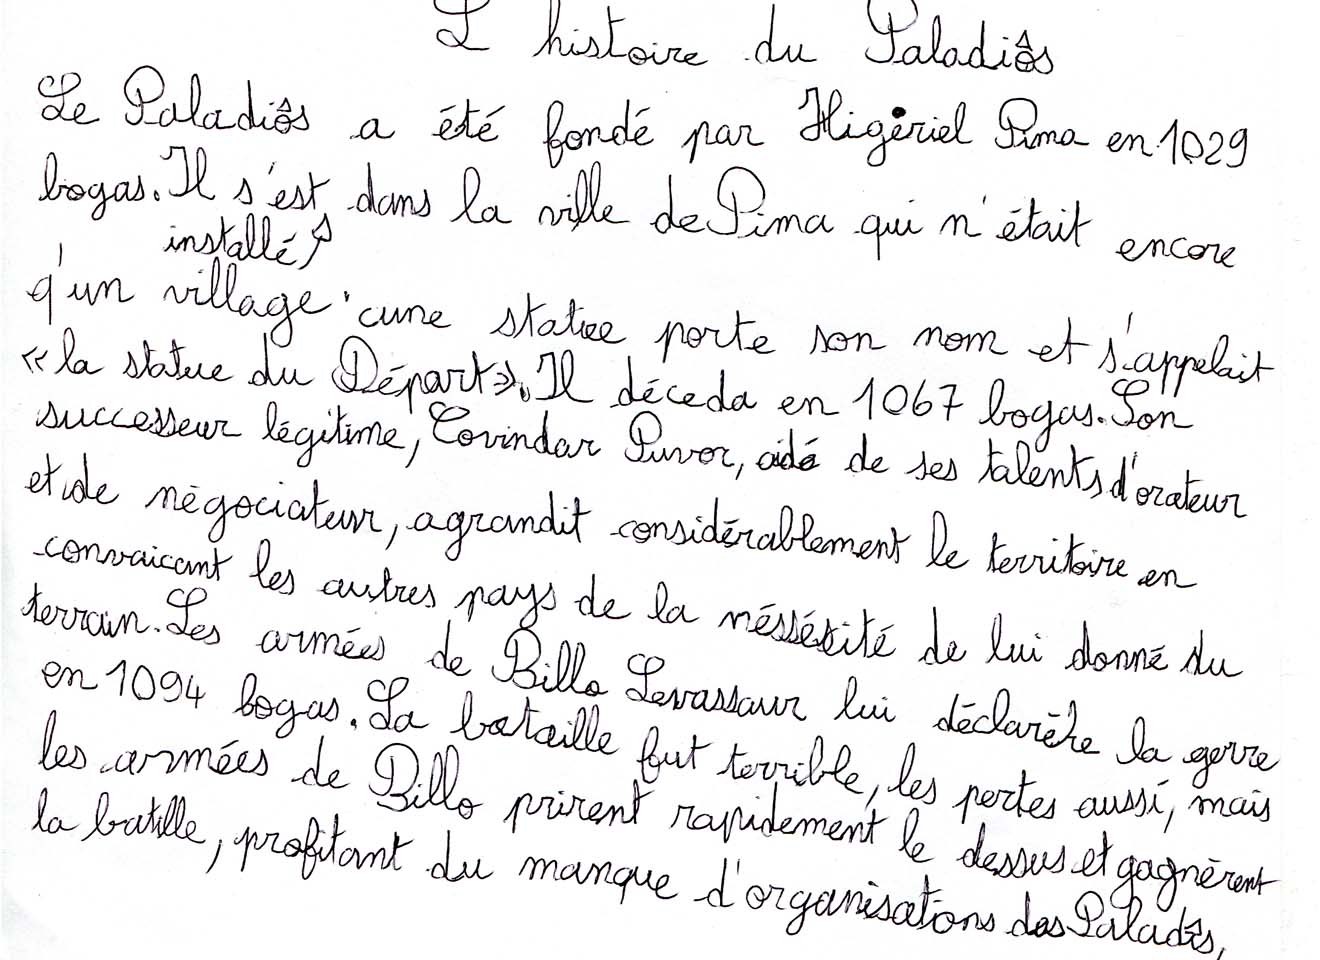 L'histoire du Paladiôs
Le Paladiôs a été fondé par Higériel Pima en 1029
bogas. Il s'est dans la ville de Pima qui n'était encore
installé
q'un village. une statue porte son nom et s'appelait
« la statue du Départ». Il déceda en 1067 bogas. Son
successeur légitime, Covindar Puvor, aidé de ses talents d'orateur
et de négociateur, agrandit considérablement le territoire en
convaicant les autres pays de la nésséxité de lui donné du
terrain. Les armées de Billo Levassaur lui déclarère la gerre
en 1094 bogas. La bataille fut terrible, les pertes aussi, mais
les armées de Billo prirent rapidement le dessus et gagnèrent
la batille, profitant du manque d'organisations des Paladîs,